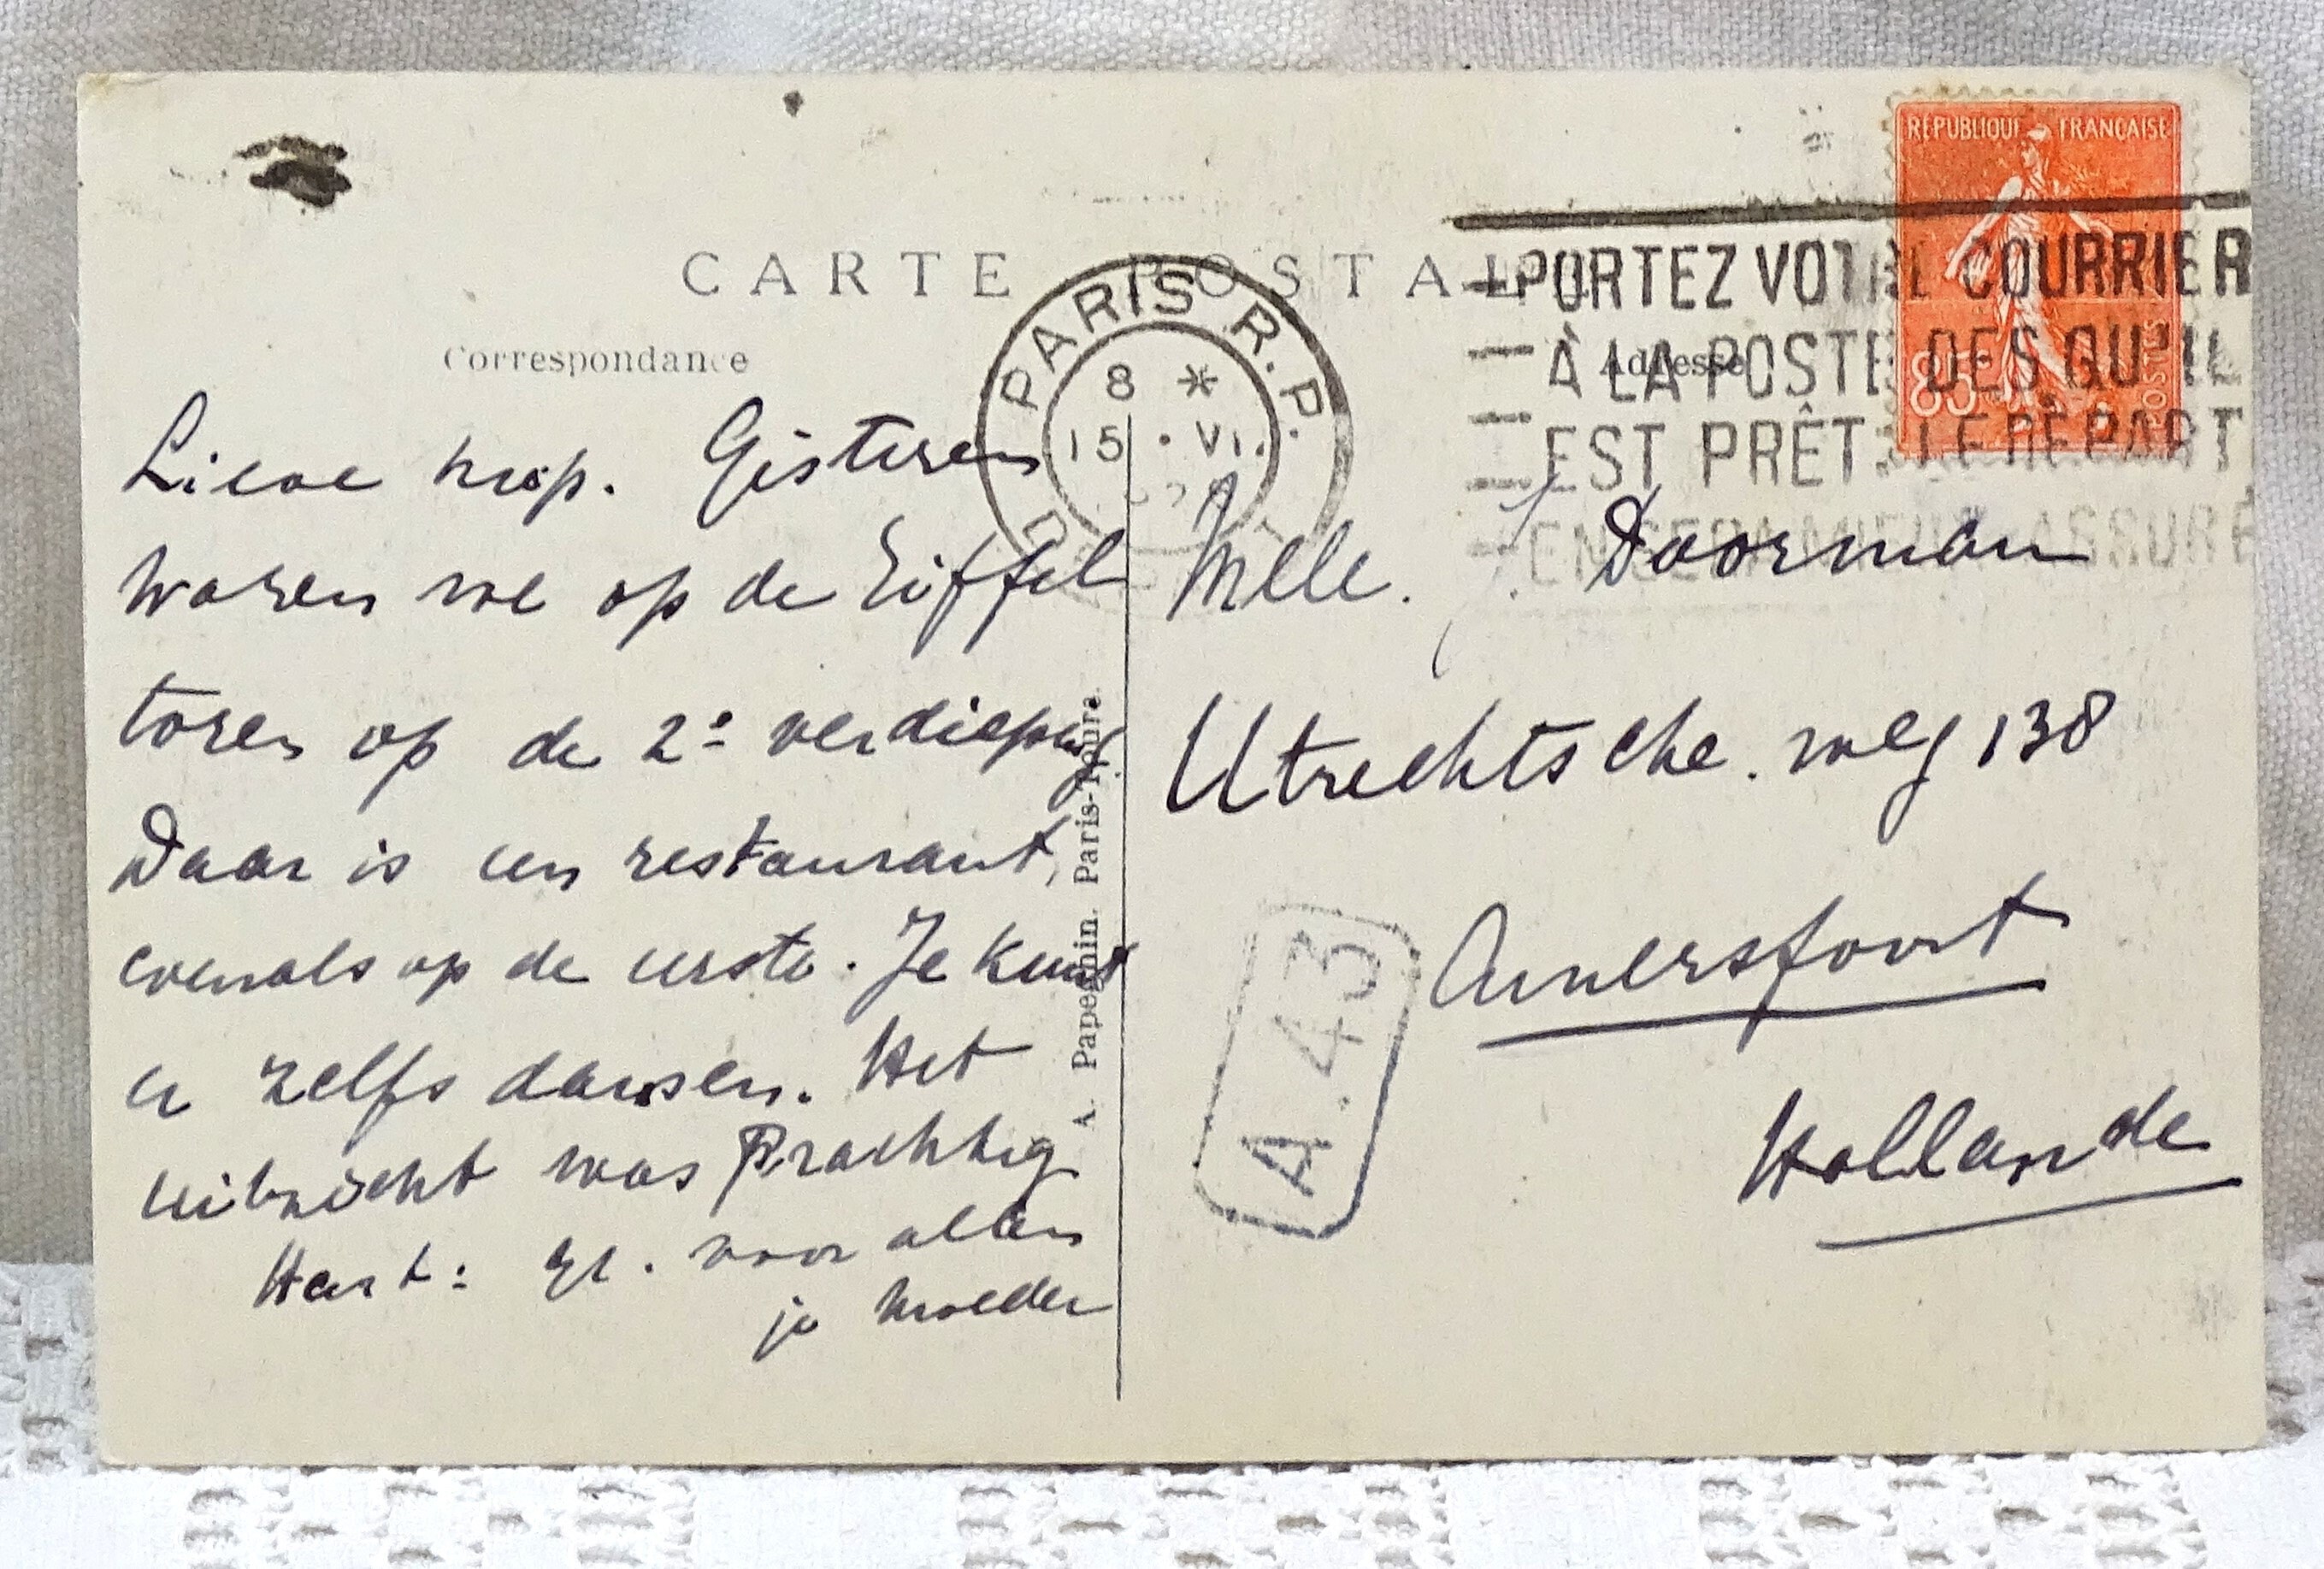 RÉPUBLIQUE FRANÇAISE
85
POSTES
CARTE POSTALE
PORTEZ VOTRE COURRIER
À LA POSTE DES QU'IL
EST PRÊT: LE DÉPART
EN SERA MIEUX ASSURÉ
PARIS R.P.
8 *
15 · VI.
DÉPART
Correspondance
Adresse
Lieve Gisteren
waren we op de Eiffel
toren op de 2e verdieping
Daar is een restaurant,
evenals op de eerste. Je kunt
er zelfs dansen. Het
uitzicht was Prachtig
Hart: gr. voor allen
je moeder
A. Papeghin. Paris-Tours.
Melle. J. Doorman
Utrechtsche.weg 138
Amersfoort
Hollande
A.43